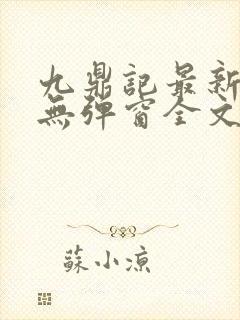 九鼎記最新
無彈窗全文
蘇小涼